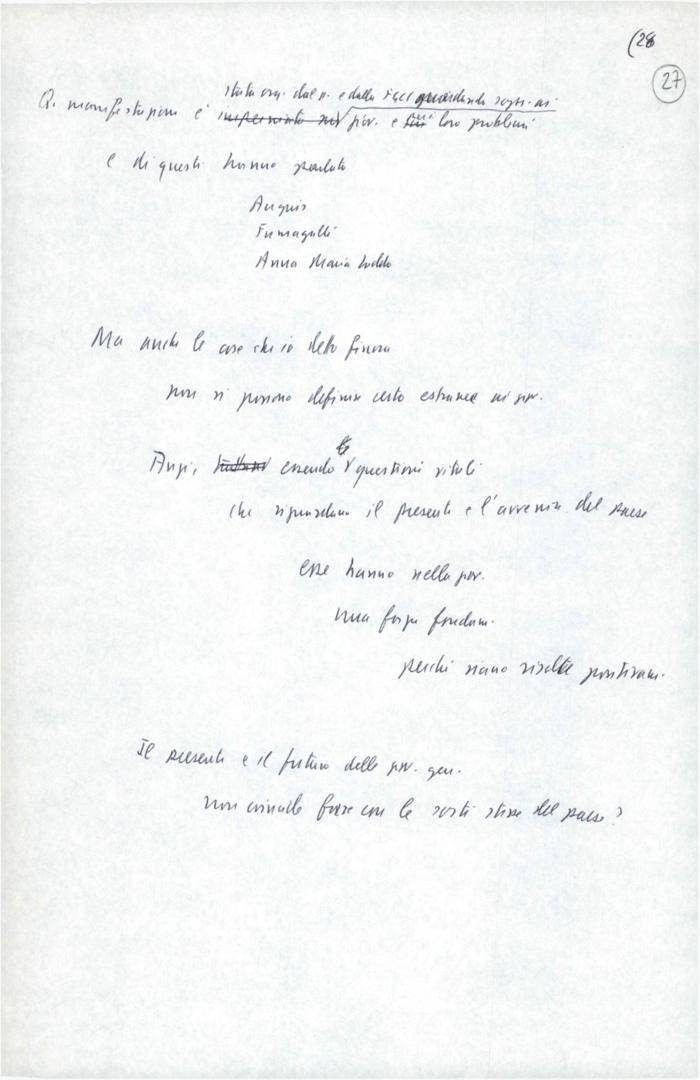 (28
27
stata org. dal p. e dalla FGCI guardando sopr. ai
Q. manifestazione è imperniata sui giov. e sui loro problemi
e di questi hanno parlato
Angius
Fumagalli
Anna Maria Loddo
Ma anche le cose che io detto finora
non si possono definire certo estranee ai giov.
Anzi, essendo le questioni vitali
che riguardano il presente e l'avvenire del paese
esse hanno nella giov.
una forza fondam.
perché siano risolte positivam.
Il presente e il futuro delle giov. gen.
non coincide forse con le sorti stesse del paese?